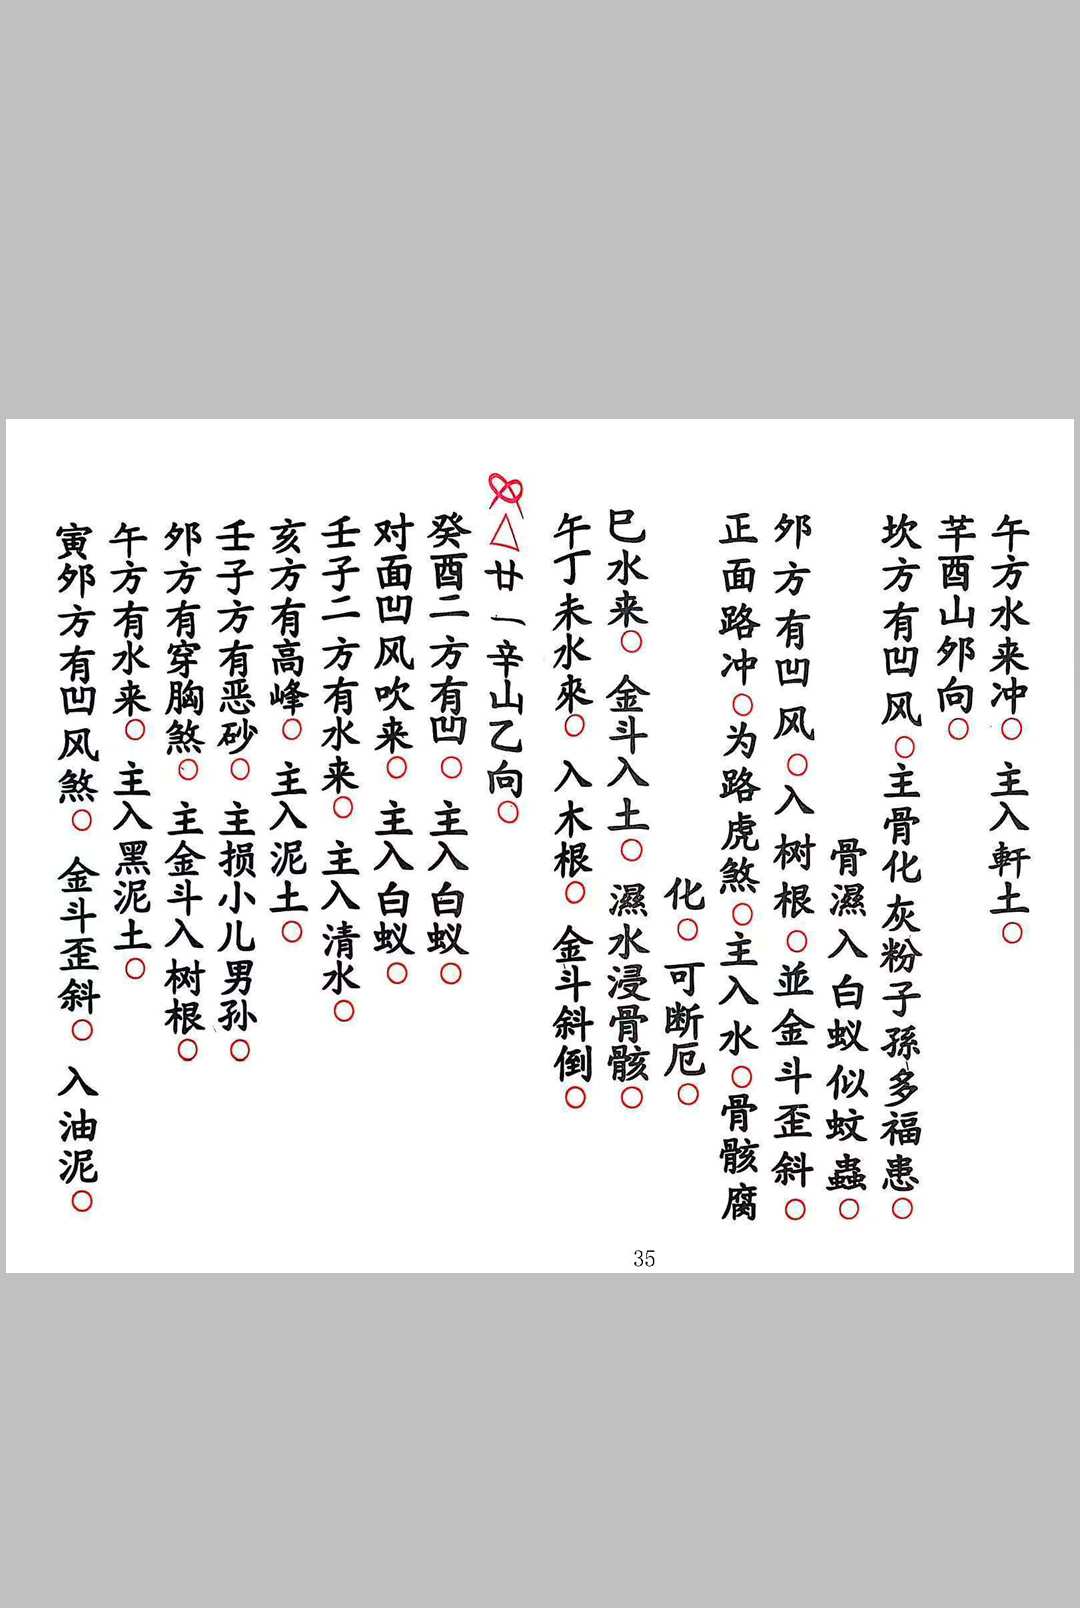 午方水来冲○主入軒土○
芉酉山夘向○
坎方有凹风○主骨化灰粉子孫多福患○
骨濕入白蚁似蚊蟲○
夘方有凹风○入树根○並金斗歪斜○
正面路冲○为路虎煞○主入水○骨骸腐
化○可断厄○
巳水来○金斗入土○濕水浸骨骸○
午丁未水來○入木根○金斗斜倒○
△廿一辛山乙向○
癸酉二方有凹○主入白蚁○
对面凹风吹来○主入白蚁○
壬子二方有水来○主入清水○
亥方有高峰○主入泥土○
壬子方有恶砂○主损小儿男孙○
夘方有穿胸煞○主金斗入树根○
午方有水来○主入黑泥土○
寅夘方有凹风煞○金斗歪斜○入油泥○
35